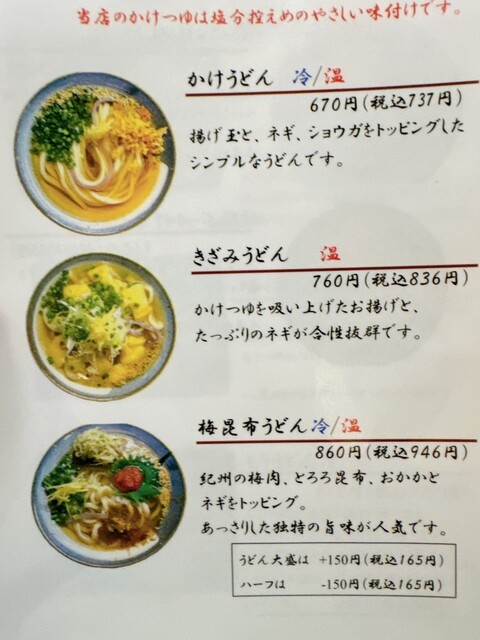 当店のかけつゆは塩分控えめのやさしい味付けです。
かけうどん 冷/温
670円(税込737円)
揚げ玉と、ネギ、ショウガをトッピングした
シンプルなうどんです。
きざみうどん 温
760円(税込836円)
かけつゆを吸い上げたお揚げと、
たっぷりのネギが合性抜群です。
梅昆布うどん 冷/温
860円(税込946円)
紀州の梅肉、とろろ昆布、おかかと
ネギをトッピング。
あっさりした独特の旨味が人気です。
うどん大盛は +150円(税込165円)
ハーフは -150円(税込165円)